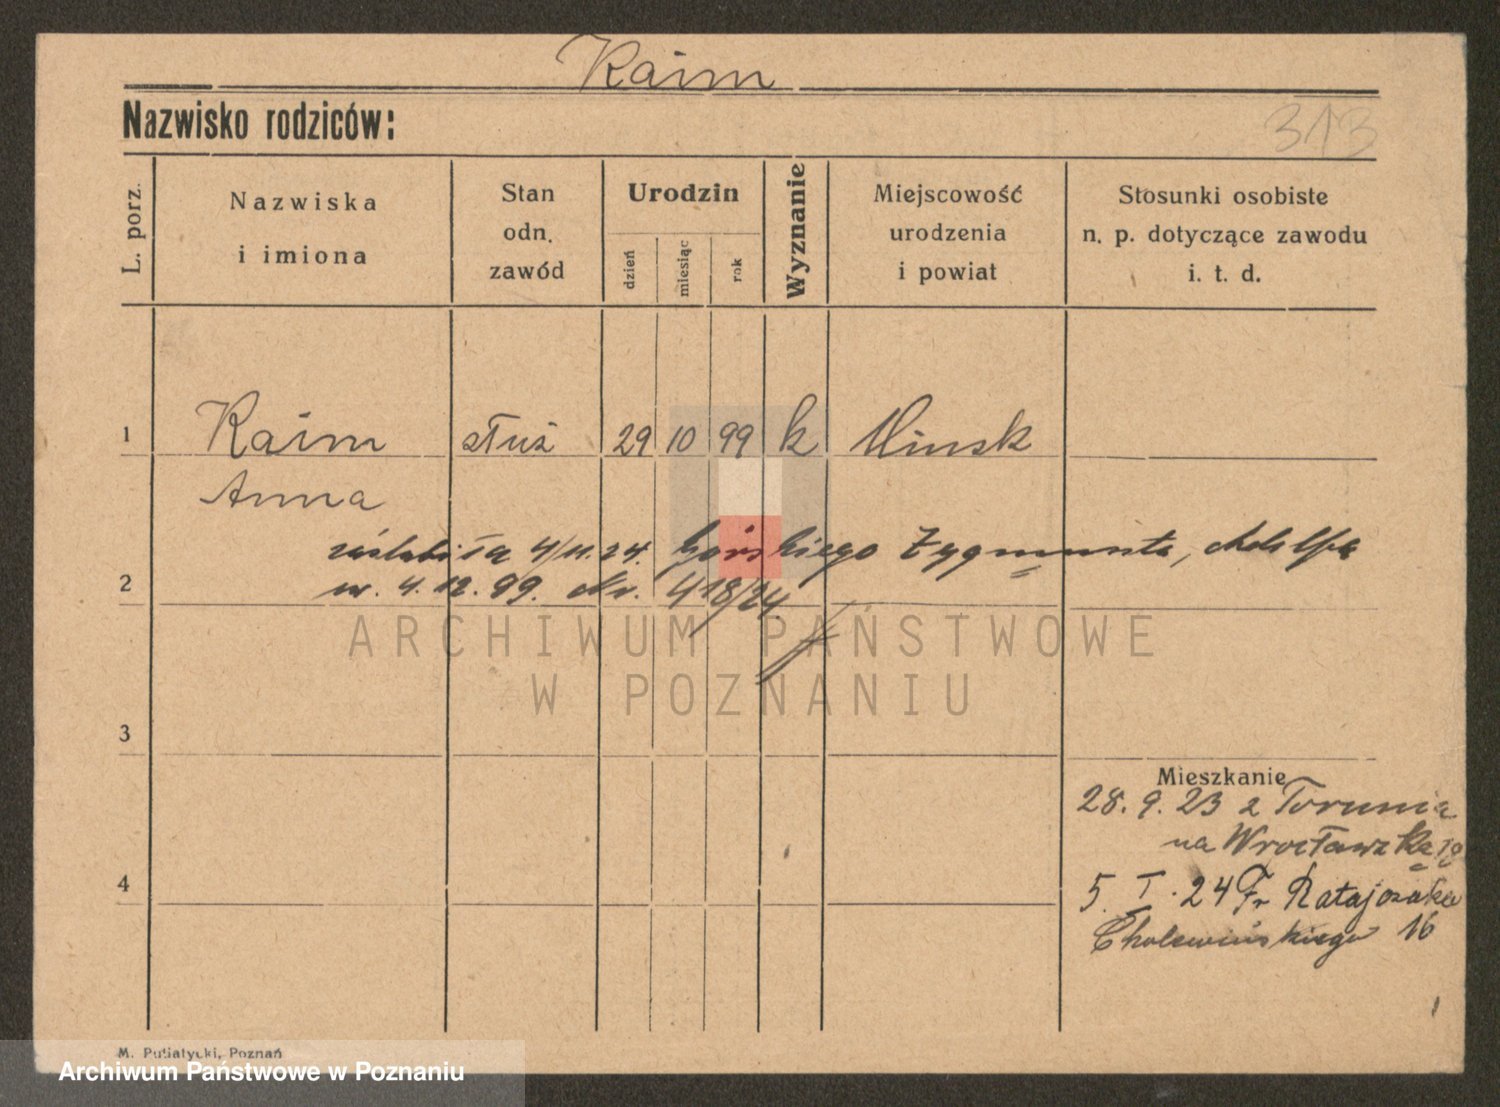 Kaim
Nazwisko rodziców:
313
L. porz.
Nazwiska
i imiona
Stan
odn.
zawód
Urodzin
dzień
miesiąc
rok
Wyznanie
Miejscowość
urodzenia
i powiat
Stosunki osobiste
n. p. dotyczące zawodu
i. t. d.
1 Kaim służ 29 10 99 k Minsk
Anna
zaślubiła 4/11.24. Górskiego Zygmunta, Adolfa
2 ur. 4.12.99. Nr. 418/24.
ARCHIWUM PAŃSTWOWE
W POZNANIU
3
Mieszkanie
28. 9. 23 z Torunia
na Wrocławską 18
4
5. I. 24 Fr Ratajczaka
Cholewińskiego 16
M. Putiatycki, Poznań
Archiwum Państwowe w Poznaniu